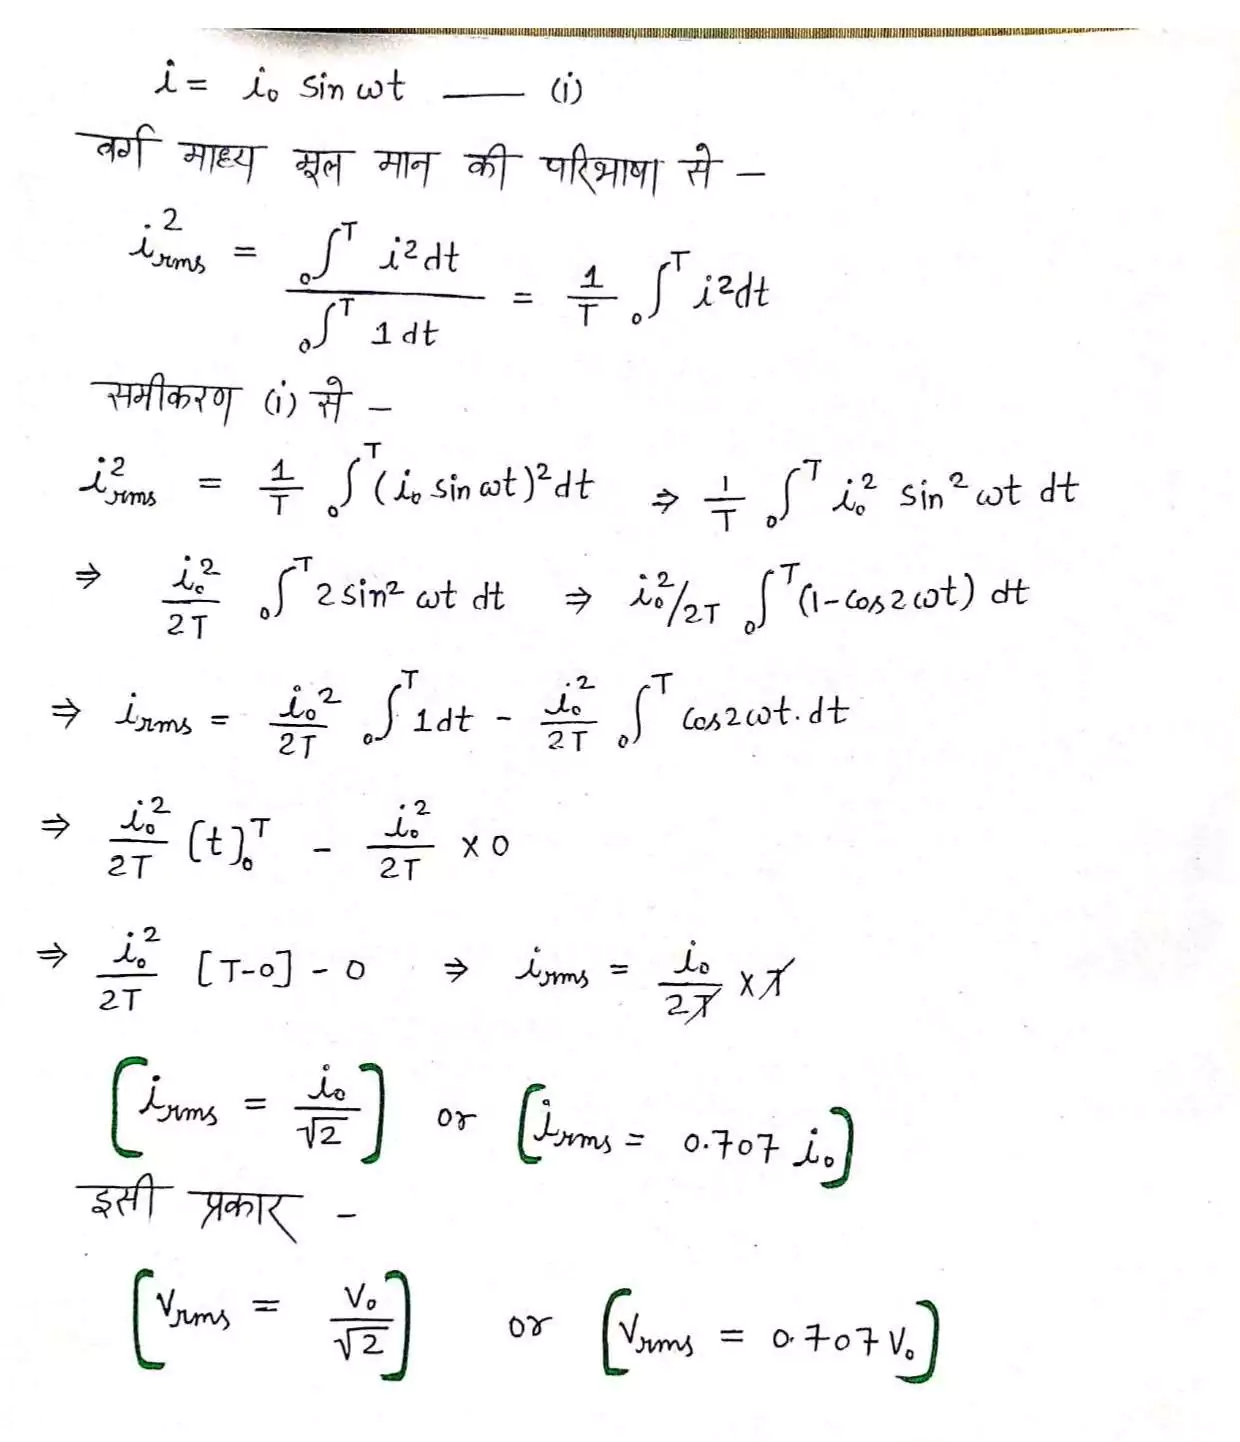 i = i₀ sin ωt —— (i)
वर्ग माध्य मूल मान की परिभाषा से –
i²rms = ₀∫ᵀ i²dt / ₀∫ᵀ 1 dt = 1/T ₀∫ᵀ i²dt
समीकरण (i) से –
i²rms = 1/T ₀∫ᵀ (i₀ sin ωt)² dt ⇒ 1/T ₀∫ᵀ i₀² sin² ωt dt
⇒ i₀²/2T ₀∫ᵀ 2 sin² ωt dt ⇒ i₀²/2T ₀∫ᵀ (1-cos2ωt) dt
⇒ irms = i₀²/2T ₀∫ᵀ 1dt - i₀²/2T ₀∫ᵀ cos2ωt.dt
⇒ i₀²/2T [t]₀ᵀ - i₀²/2T × 0
⇒ i₀²/2T [T-0] - 0 ⇒ irms = i₀/2T × T
[irms = i₀/√2] or [irms = 0.707 i₀]
इसी प्रकार –
[Vrms = V₀/√2] or [Vrms = 0.707 V₀]